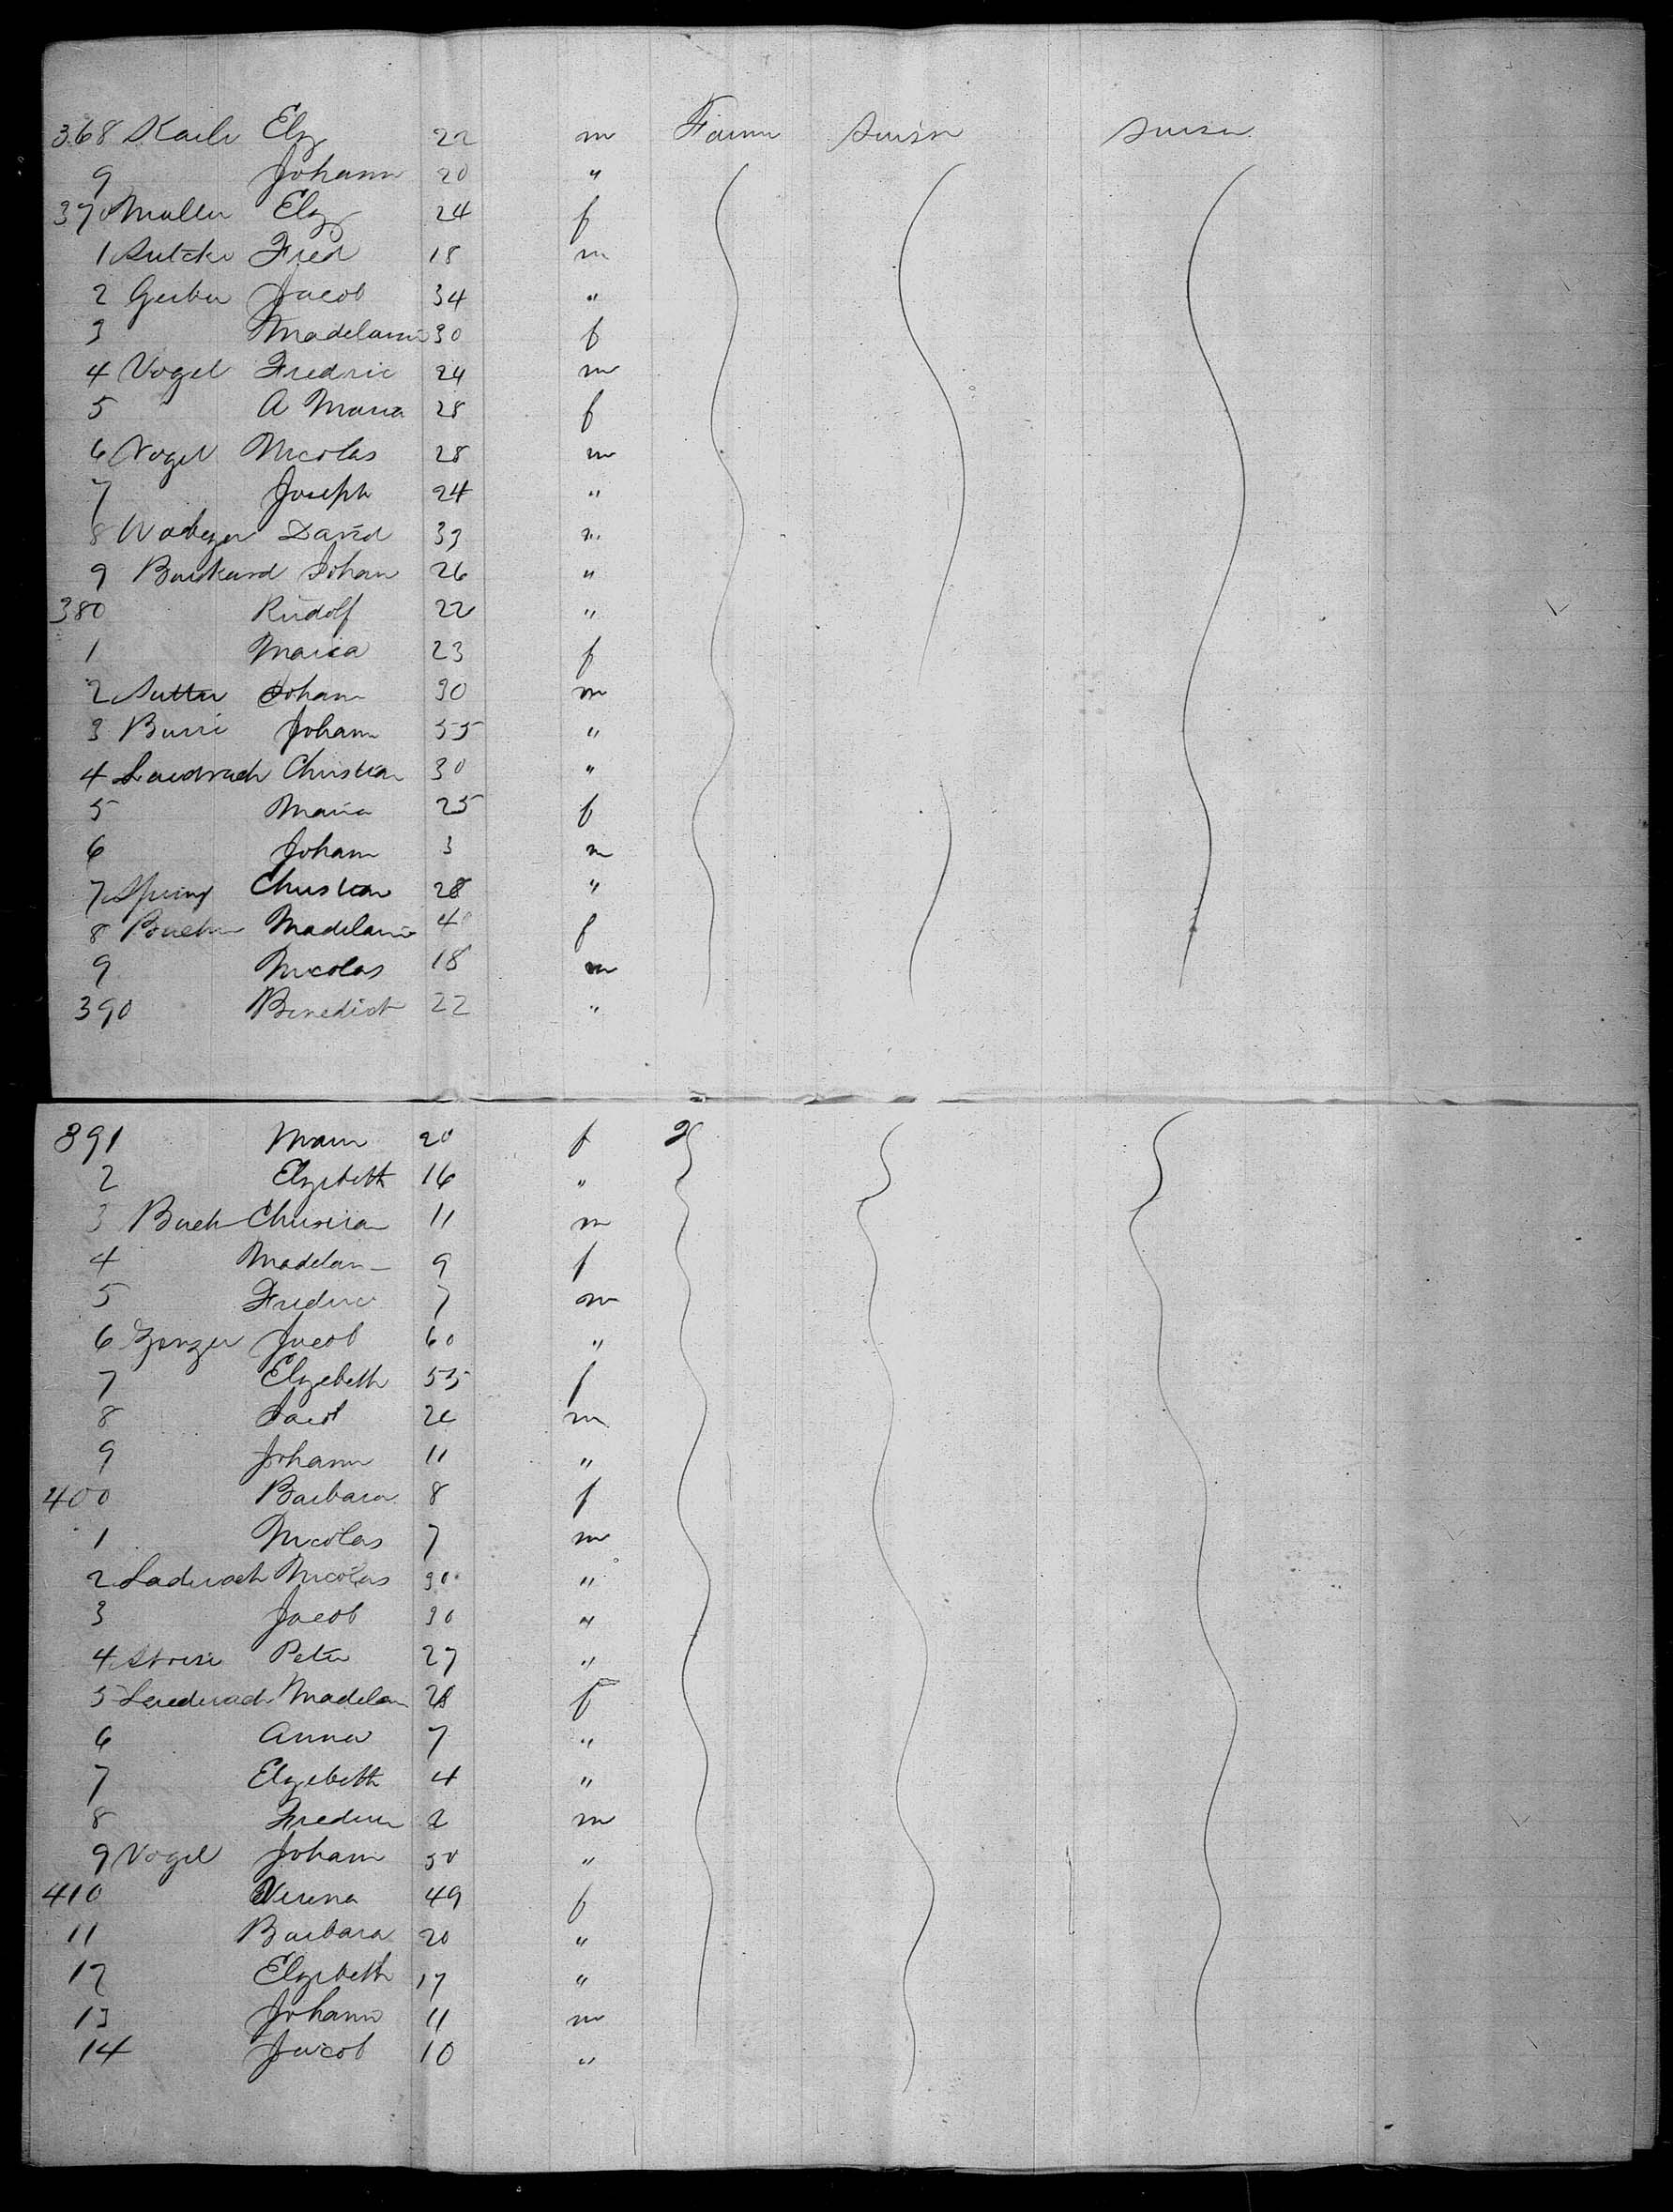 368 Karli Elz 22 m Farmr Suisse Suisse
9 Johann 20 "
370 Muller Elz 24 f
1 Fred 18 m
2 Gerber Jacob 34 "
3 Madelaine 30 f
4 Vogel Fredric 24 m
5 A Maria 28 f
6 Vogel Nicolas 28 m
7 Joseph 24 "
8 David 33 m
9 Burkard Johan 26 "
380 Rudolf 22 "
1 Maria 23 f
2 Sutter Johann 30 m
3 Burri Johann 55 "
4 Christian 30 "
5 Maria 25 f
6 Johann 3 m
7 Spring Christian 28 "
8 Madelaine 40 f
9 Nicolas 18 m
390 Benedict 22 "
391 Maria 20 f
2 Elzebeth 16 "
3 Bach Christian 11 m
4 Madelan 9 f
5 Frederic 7 m
6 Zenger Jacob 60 "
7 Elzebeth 55 f
8 Jacob 20 m
9 Johann 11 "
400 Barbara 8 f
1 Nicolas 7 m
2 Laderach Nicolas 30 "
3 Jacob 30 "
4 Peter 27 "
5 Laederach Madelan 28 f
6 Anna 7 "
7 Elzebeth 4 "
8 Frederic 2 m
9 Vogel Johann 50 "
410 Verena 49 f
11 Barbara 20 "
12 Elzebeth 17 "
13 Johann 11 m
14 Jacob 10 "